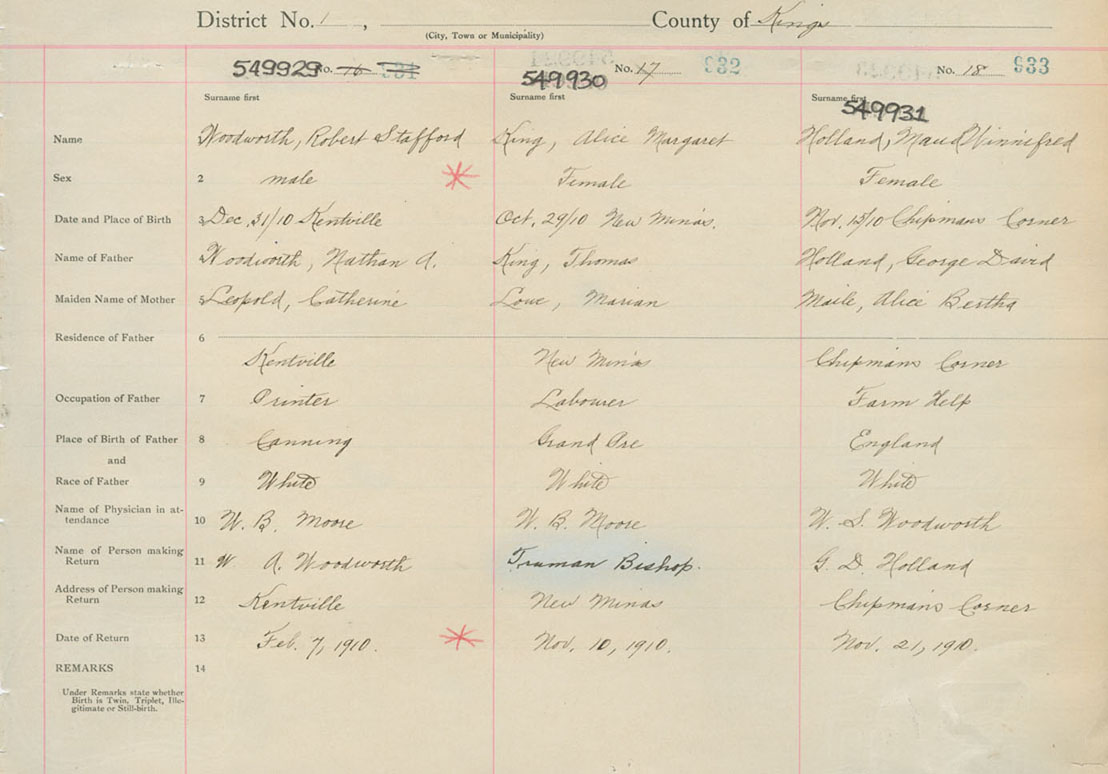 District No. 1 , County of Kings
(City, Town or Municipality)
549929 No. 16 931 549930 No. 17 932 No. 18 933
Surname first Surname first Surname first 549931
Name Woodworth, Robert Stafford King, Alice Margaret Holland, Maud Winnifred
Sex 2 male Female Female
Date and Place of Birth 3 Dec. 31/10 Kentville Oct. 29/10 New Minas. Nov. 15/10 Chipmans Corner
Name of Father Woodworth, Nathan A. King, Thomas Holland, George David
Maiden Name of Mother 5 Leopold, Catherine Marian Maile, Alice Bertha
Residence of Father 6
Kentville New Minas Chipmans Corner
Occupation of Father 7 Printer Labourer Farm Help
Place of Birth of Father 8 Canning Grand Pre England
and
Race of Father 9 White White White
Name of Physician in at-
tendance 10 W. B. Moore W. B. Moore W. S. Woodworth
Name of Person making
Return 11 W A. Woodworth Truman Bishop. G. D. Holland
Address of Person making
Return 12 Kentville New Minas Chipmans Corner
Date of Return 13 Feb. 7, 1910. Nov. 10, 1910. Nov. 21, 1910.
REMARKS 14
Under Remarks state whether
Birth is Twin, Triplet, Ille-
gitimate or Still-birth.